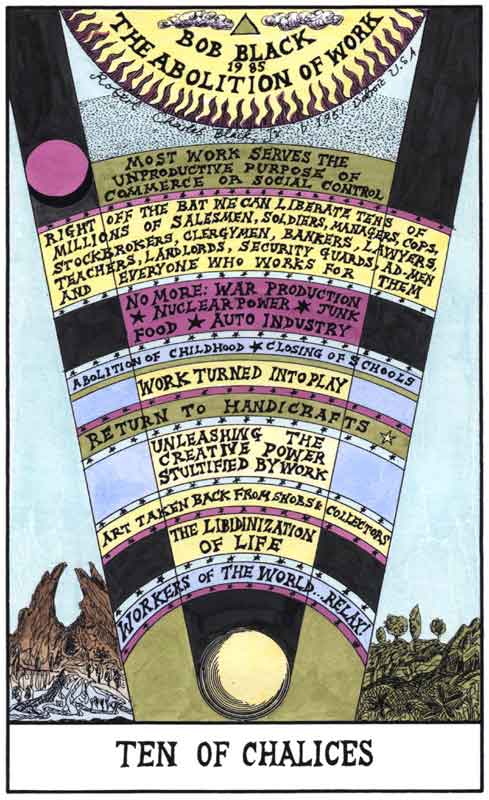 BOB BLACK
1985
THE ABOLITION OF WORK
Robert Charles Black Jr. b. 1951 Detroit U.S.A.
MOST WORK SERVES THE
UNPRODUCTIVE PURPOSE OF
COMMERCE OR SOCIAL CONTROL
RIGHT OFF THE BAT WE CAN LIBERATE TENS OF
MILLIONS OF SALESMEN, SOLDIERS, MANAGERS, COPS,
STOCKBROKERS, CLERGYMEN, BANKERS, LAWYERS,
TEACHERS, LANDLORDS, SECURITY GUARDS, AD-MEN
AND EVERYONE WHO WORKS FOR THEM
NO MORE: WAR PRODUCTION
★ NUCLEAR POWER ★ JUNK
FOOD ★ AUTO INDUSTRY
ABOLITION OF CHILDHOOD ★ CLOSING OF SCHOOLS
WORK TURNED INTO PLAY
RETURN TO HANDICRAFTS ☆
UNLEASHING THE
CREATIVE POWER
STULTIFIED BY WORK
ART TAKEN BACK FROM SNOBS & COLLECTORS
THE LIBIDINIZATION
OF LIFE
WORKERS OF THE WORLD...RELAX!
TEN OF CHALICES